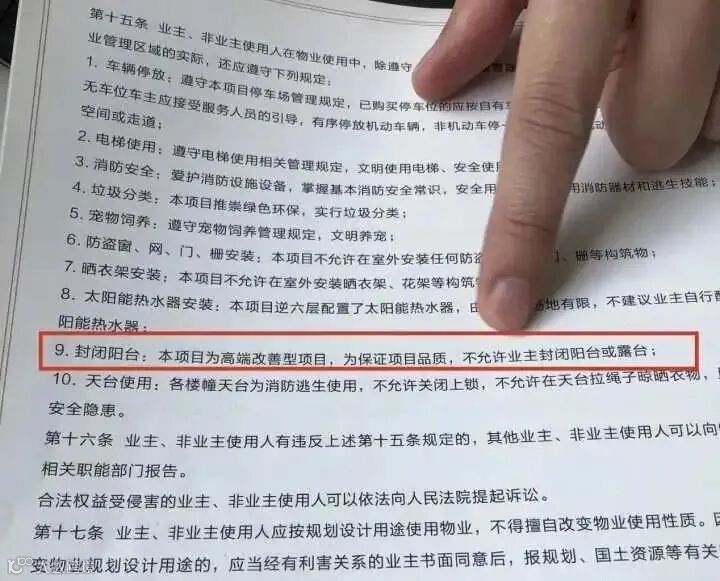 第十五条 业主、非业主使用人在物业使用中，除遵守
业管理区域的实际，还应遵守下列规定：
1. 车辆停放：遵守本项目停车场管理规定，已购买停车位的应按自有
无车位车主应接受服务人员的引导，有序停放机动车辆，非机动车停
空间或走道；
2. 电梯使用：遵守电梯使用相关管理规定，文明使用电梯、安全使
3. 消防安全：爱护消防设施设备，掌握基本消防安全常识，安全用 用消防器材和逃生技能；
4. 垃圾分类：本项目推崇绿色环保，实行垃圾分类；
5. 宠物饲养：遵守宠物饲养管理规定，文明养宠；
6. 防盗窗、网、门、栅安装：本项目不允许在室外安装任何防盗 门、栅等构筑物；
7. 晒衣架安装：本项目不允许在室外安装晒衣架、花架等构筑
8. 太阳能热水器安装：本项目逆六层配置了太阳能热水器，由 场地有限，不建议业主自行配
阳能热水器；
9. 封闭阳台：本项目为高端改善型项目，为保证项目品质，不允许业主封闭阳台或露台；
10. 天台使用：各楼幢天台为消防逃生使用，不允许关闭上锁，不允许在天台拉绳子晾晒衣物，
安全隐患。
第十六条 业主、非业主使用人有违反上述第十五条规定的，其他业主、非业主使用人可以向
相关职能部门报告。
合法权益受侵害的业主、非业主使用人可以依法向人民法院提起诉讼。
第十七条 业主、非业主使用人应按规划设计用途使用物业，不得擅自改变物业使用性质。因
变物业规划设计用途的，应当经有利害关系的业主书面同意后，报规划、国土资源等有关